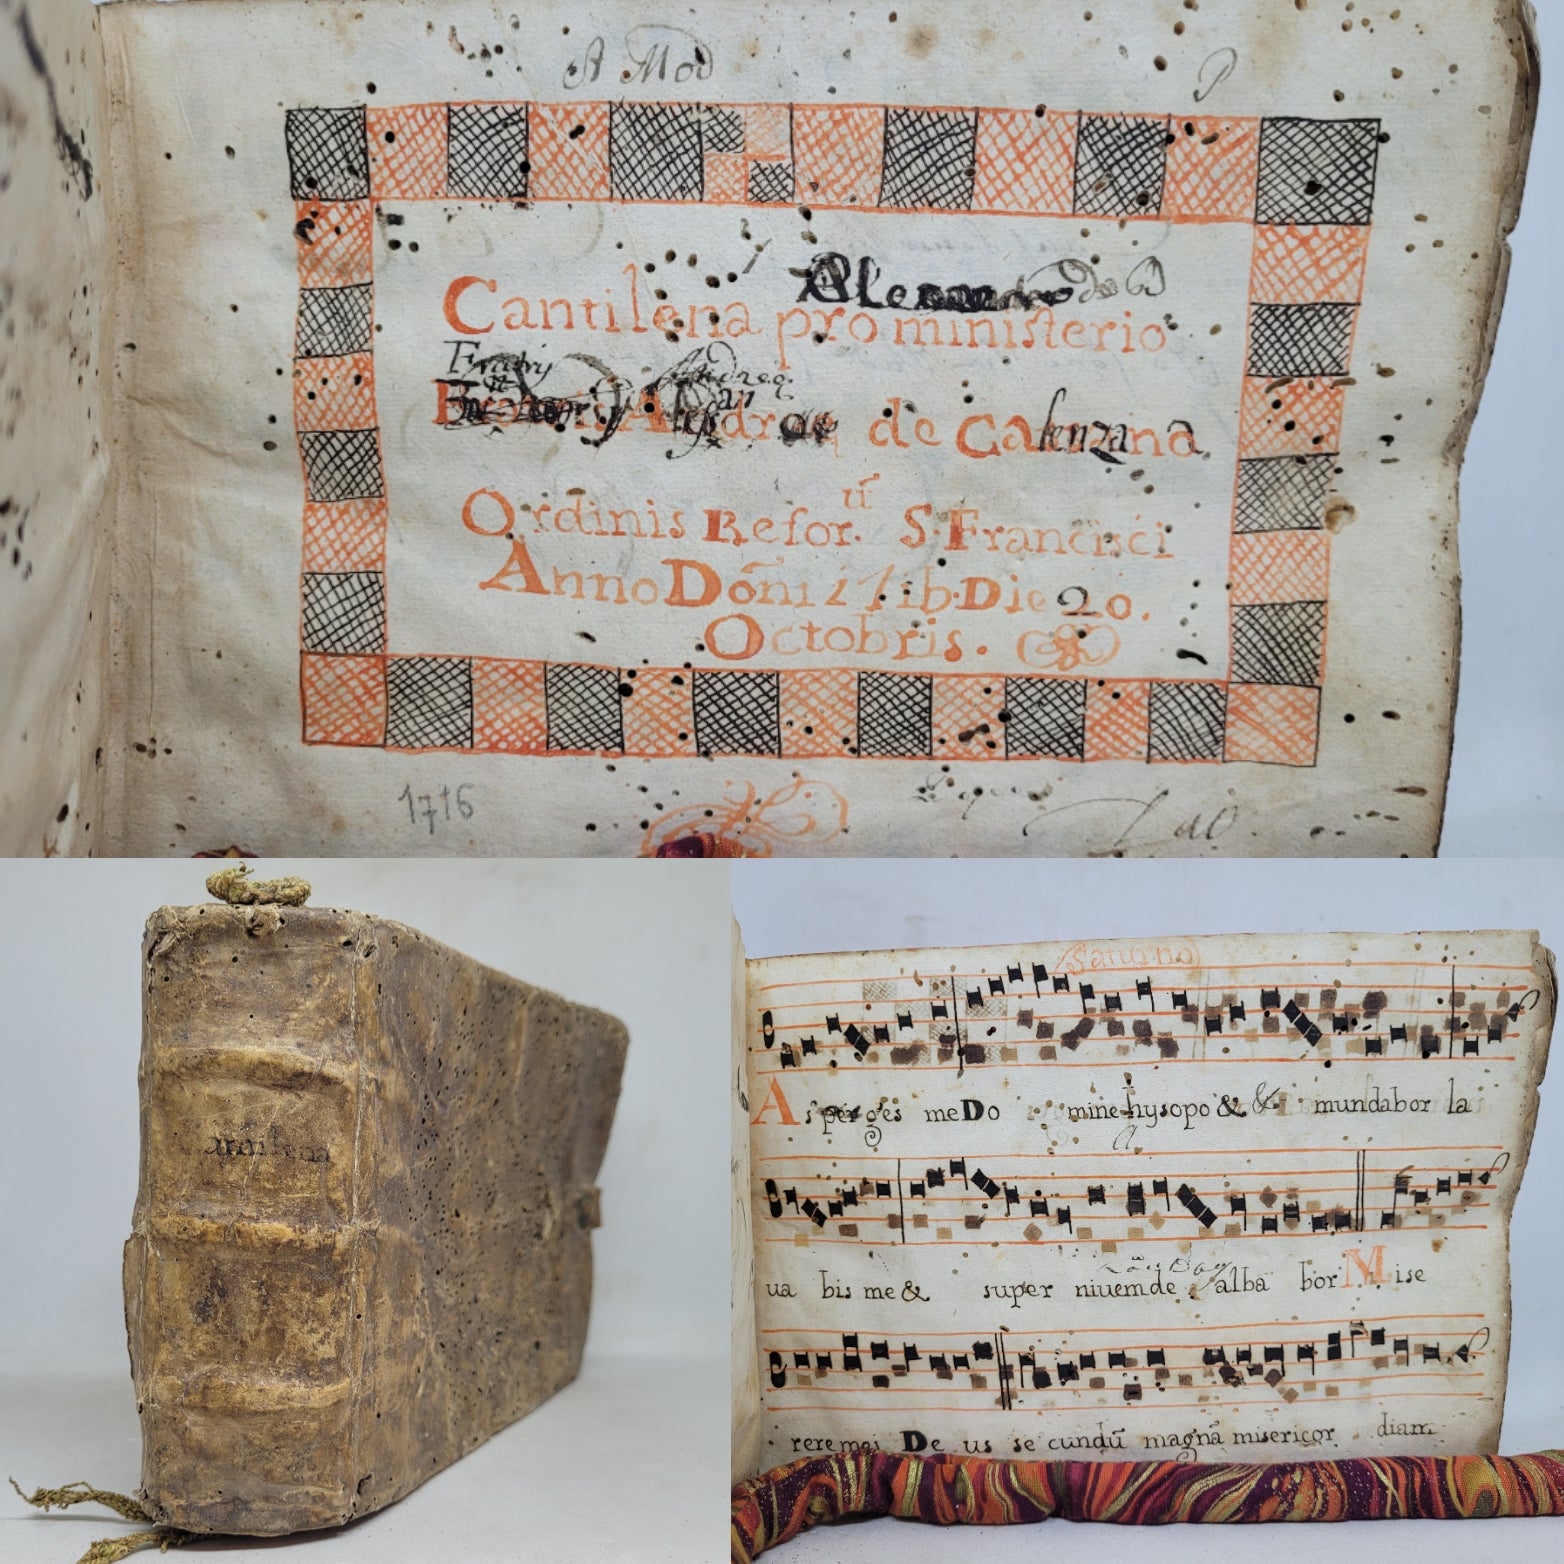 A Mod P
Cantilena pro ministerio
Fratris Andreę
de Calenzana
Ordinis Refor.tũ S. Francisci
Anno Dõni 17ib. Die 20.
Octobris.
1716
Cantilena
Saturno
Asperges me Do mine hysopo & & mundabor la
ua bis me & super niuem de alba bor Mise
rere mei De us se cundũ magnã misericor diam